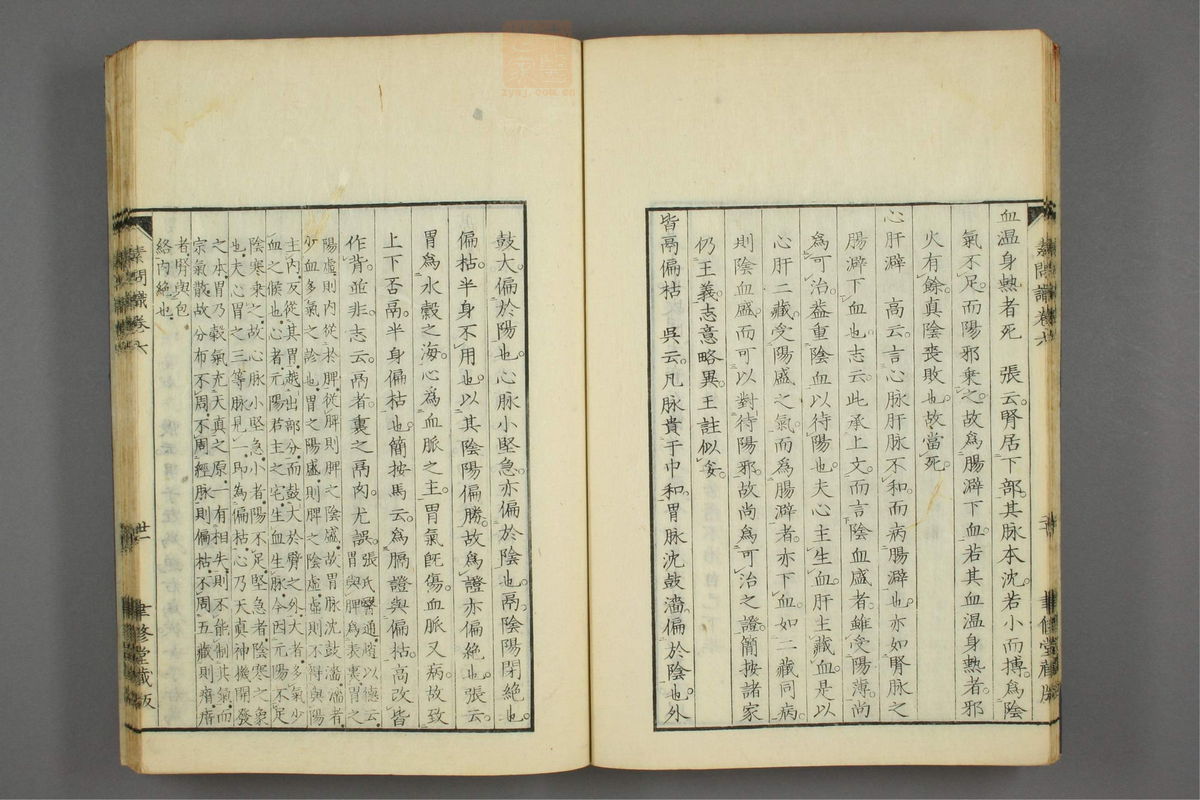 血溫身熱者死　張云。腎居下部。其脉本沈。若小而搏。爲陰
氣不足。而陽邪乗之。故爲腸澼下血。若其血溫身熱者。邪
火有餘。眞陰喪敗也。故當死。
心肝澼　高云。言心脉肝脉不和。而病腸澼也。亦如腎脉之
腸澼下血也。志云。此承上文。而言陰血盛者。雖受陽薄。尚
爲可治。葢重陰血以待陽也。夫心主生血。肝主藏血。是以
心肝二藏。受陽盛之氣。而爲腸澼者。亦下血。如二藏同病。
則陰血盛。而可以對待陽邪。故尚爲可治之證。簡按諸家
仍王義。志意略異。王註似妥。
皆鬲偏枯　吳云。凡脉貴于中和。胃脉沈鼓濇。偏於陰也。外
鼓大。偏於陽也。心脉小堅急。亦偏於陰也。鬲。陰陽閉絶也。
偏枯。半身不用也。以其陰陽偏勝。故爲證亦偏絶也。張云。
胃爲水穀之海。心爲血脈之主。胃氣旣傷。血脈又病。故致
上下否鬲。半身偏枯也。簡按馬云。爲膈證與偏枯。高改皆
作背。並非。志云。鬲者裏之鬲肉。尤誤。張氏醫通。趙以德云。胃與脾爲表裏。胃之
陽虛。則内從於脾。從脾則脾之陰盛。故胃脈沈鼓濇。濇者。
少血多氣之診也。胃之陽盛。則脾之陰虛。虛則不得與陽
主内。反從其胃。越出部分。而鼓大於臂之外。大者。多氣少
血之候也。心者。元陽君主之宅。生血生脉。今因元陽不足。
陰寒乘之。故心脉小堅急。小者。陽不足。堅急者。陰寒之象
也。夫心胃之三等脉見一。即為偏枯。心乃天真神機開發
之本。胃乃穀氣充天真之原。一有相失。則不能制其氣。而
宗氣散。故分布不周。不周經脉則偏枯。不周五藏則瘖。瘖
者。腎與包
絡内絶也。
素問識卷六
三
聿修堂藏版
素問識卷六
卅一
聿修堂藏版
zysj.com.cn